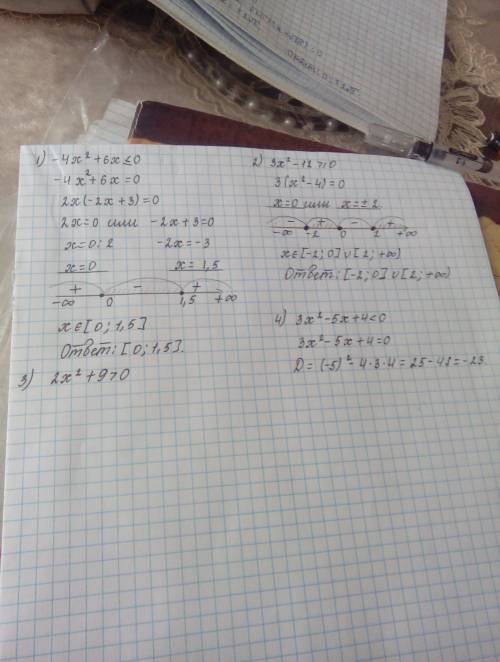 1) -4x² + 6x ≤ 0
-4x² + 6x = 0
2x(-2x + 3) = 0
2x = 0 или -2x + 3 = 0
x = 0 : 2 -2x = -3
x = 0 x = 1,5
+ - +
-∞ 0 1,5 +∞
x ∈ [0; 1,5]
Ответ: [0; 1,5].
2) 3x² - 12 > 0
3(x² - 4) = 0
x = 0 или x = ± 2
- + - +
-∞ -2 0 2 +∞
x ∈ [-2; 0] ∪ [2; +∞)
Ответ: [-2; 0] ∪ [2; +∞)
3) 2x² + 9 > 0
4) 3x² - 5x + 4 < 0
3x² - 5x + 4 = 0
D = (-5)² - 4·3·4 = 25 - 48 = -23